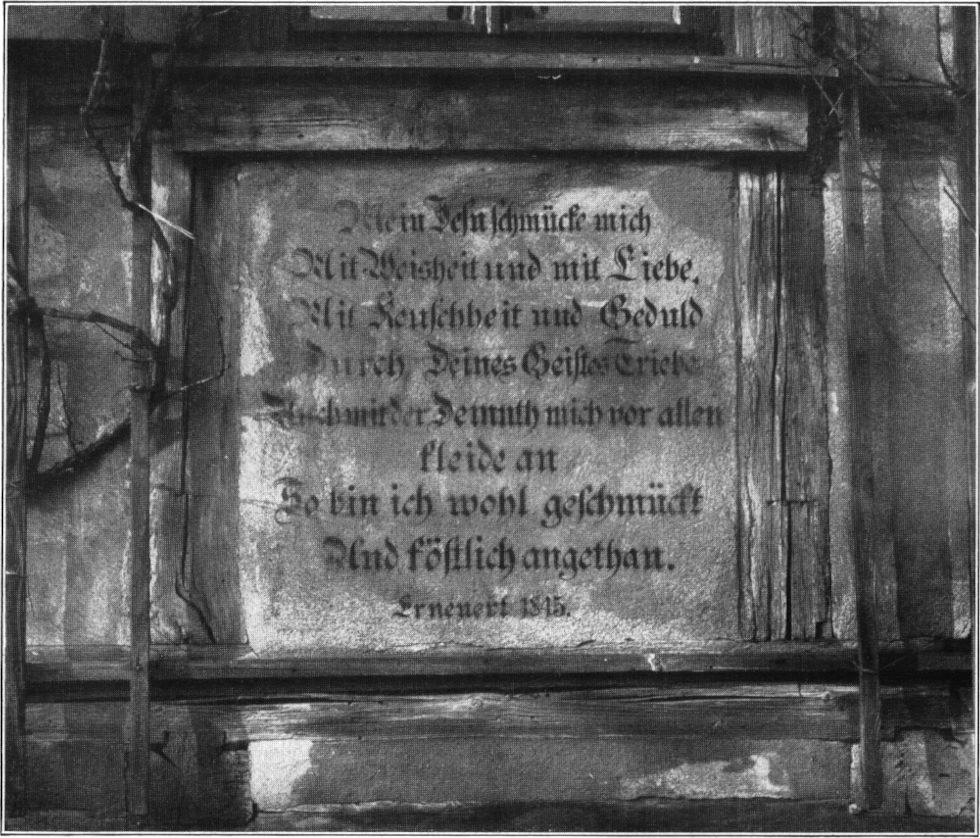 Mein Jesu schmücke mich
Mit Weisheit und mit Liebe,
Mit Keuschheit und Geduld
Durch Deines Geistes Triebe
Auch mit der Demuth mich vor allen
kleide an
So bin ich wohl geschmückt
Und köstlich angethan.
Erneuert 1845.